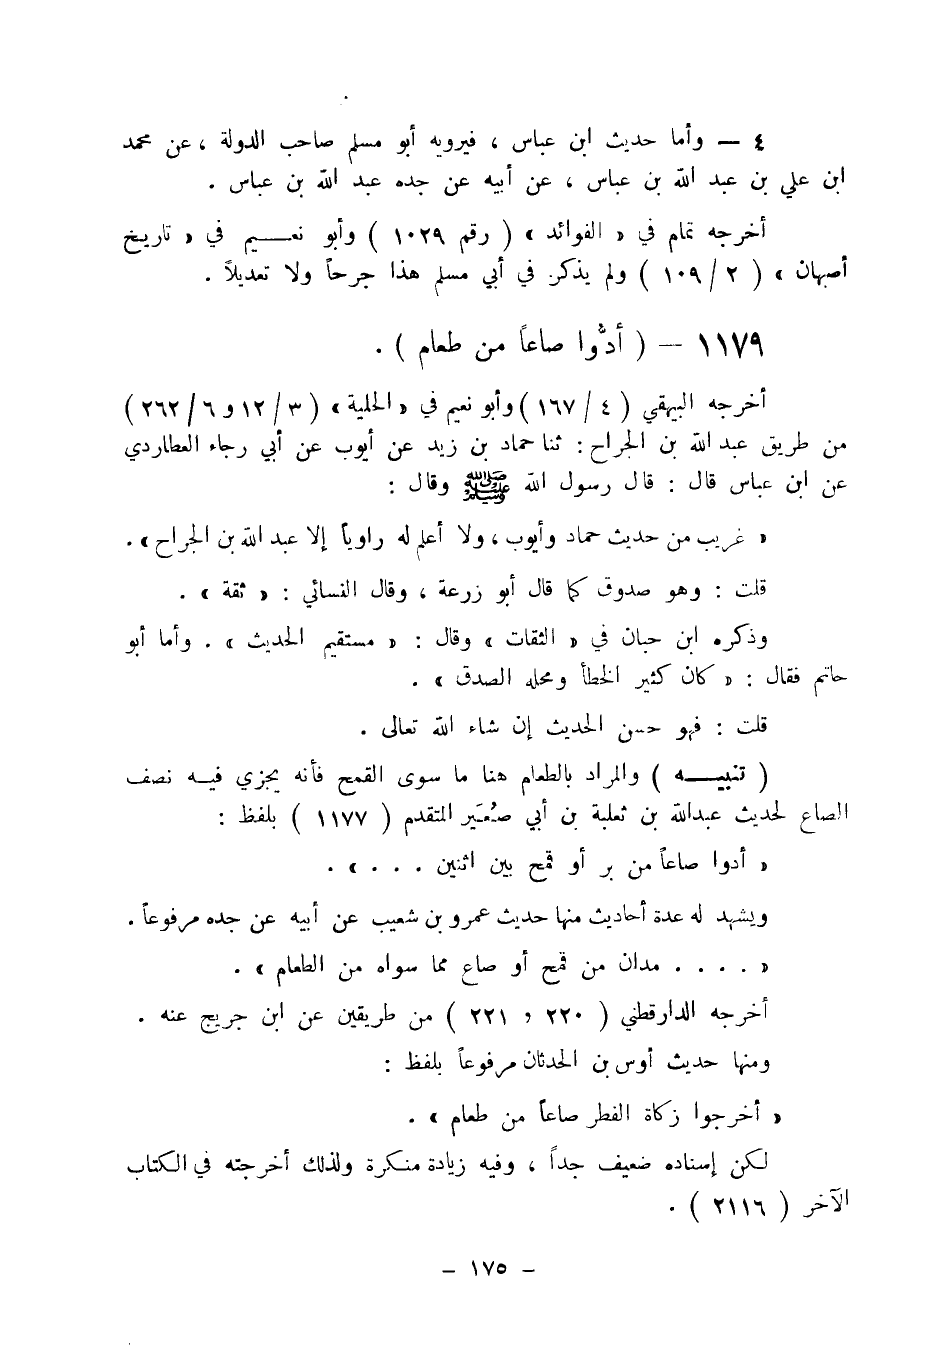 ٤ — وأما حديث ابن عباس ، فيرويه أبو مسلم صاحب الدولة ، عن محمد
ابن علي بن عبد الله بن عباس ، عن أبيه عن جده عبد الله بن عباس .
أخرجه تمام في « الفوائد » ( رقم ١٠٢٩ ) وأبو نعـــيم في « تاريخ
أصبهان » ( ٢ / ١٠٩ ) ولم يذكر في أبي مسلم هذا جرحاً ولا تعديلاً .
١١٧٩ — ( أدُّوا صاعاً من طعام ) .
أخرجه البيهقي ( ٤ / ١٦٧ ) وأبو نعيم في « الحلية » ( ٣ / ١٢ و ٦ / ٢٦٢ )
من طريق عبد الله بن الجراح : ثنا حماد بن زيد عن أيوب عن أبي رجاء العطاردي
عن ابن عباس قال : قال رسول الله ﷺ وقال :
« غريب من حديث حماد وأيوب ، ولا أعلم له راوياً إلا عبد الله بن الجراح » .
قلت : وهو صدوق كما قال أبو زرعة ، وقال النسائي : « ثقة » .
وذكره ابن حبان في « الثقات » وقال : « مستقيم الحديث » . وأما أبو
حاتم فقال : « كان كثير الخطأ ومحله الصدق » .
قلت : فهو حسن الحديث إن شاء الله تعالى .
( تنبيـــه ) والمراد بالطعام هنا ما سوى القمح فأنه يجزي فيـه نصف
الصاع لحديث عبدالله بن ثعلبة بن أبي صُعَير المتقدم ( ١١٧٧ ) بلفظ :
« أدوا صاعاً من بر أو قمح بين اثنين . . . » .
ويشهد له عدة أحاديث منها حديث عمرو بن شعيب عن أبيه عن جده مرفوعاً .
« . . . . مدان من قمح أو صاع مما سواه من الطعام » .
أخرجه الدارقطني ( ٢٢٠ و ٢٢١ ) من طريقين عن ابن جريج عنه .
ومنها حديث أوس بن الحدثان مرفوعاً بلفظ :
« أخرجوا زكاة الفطر صاعاً من طعام » .
لكن إسناده ضعيف جداً ، وفيه زيادة منكرة ولذلك أخرجته في الكتاب
الآخر ( ٢١١٦ ) .
- ١٧٥ -